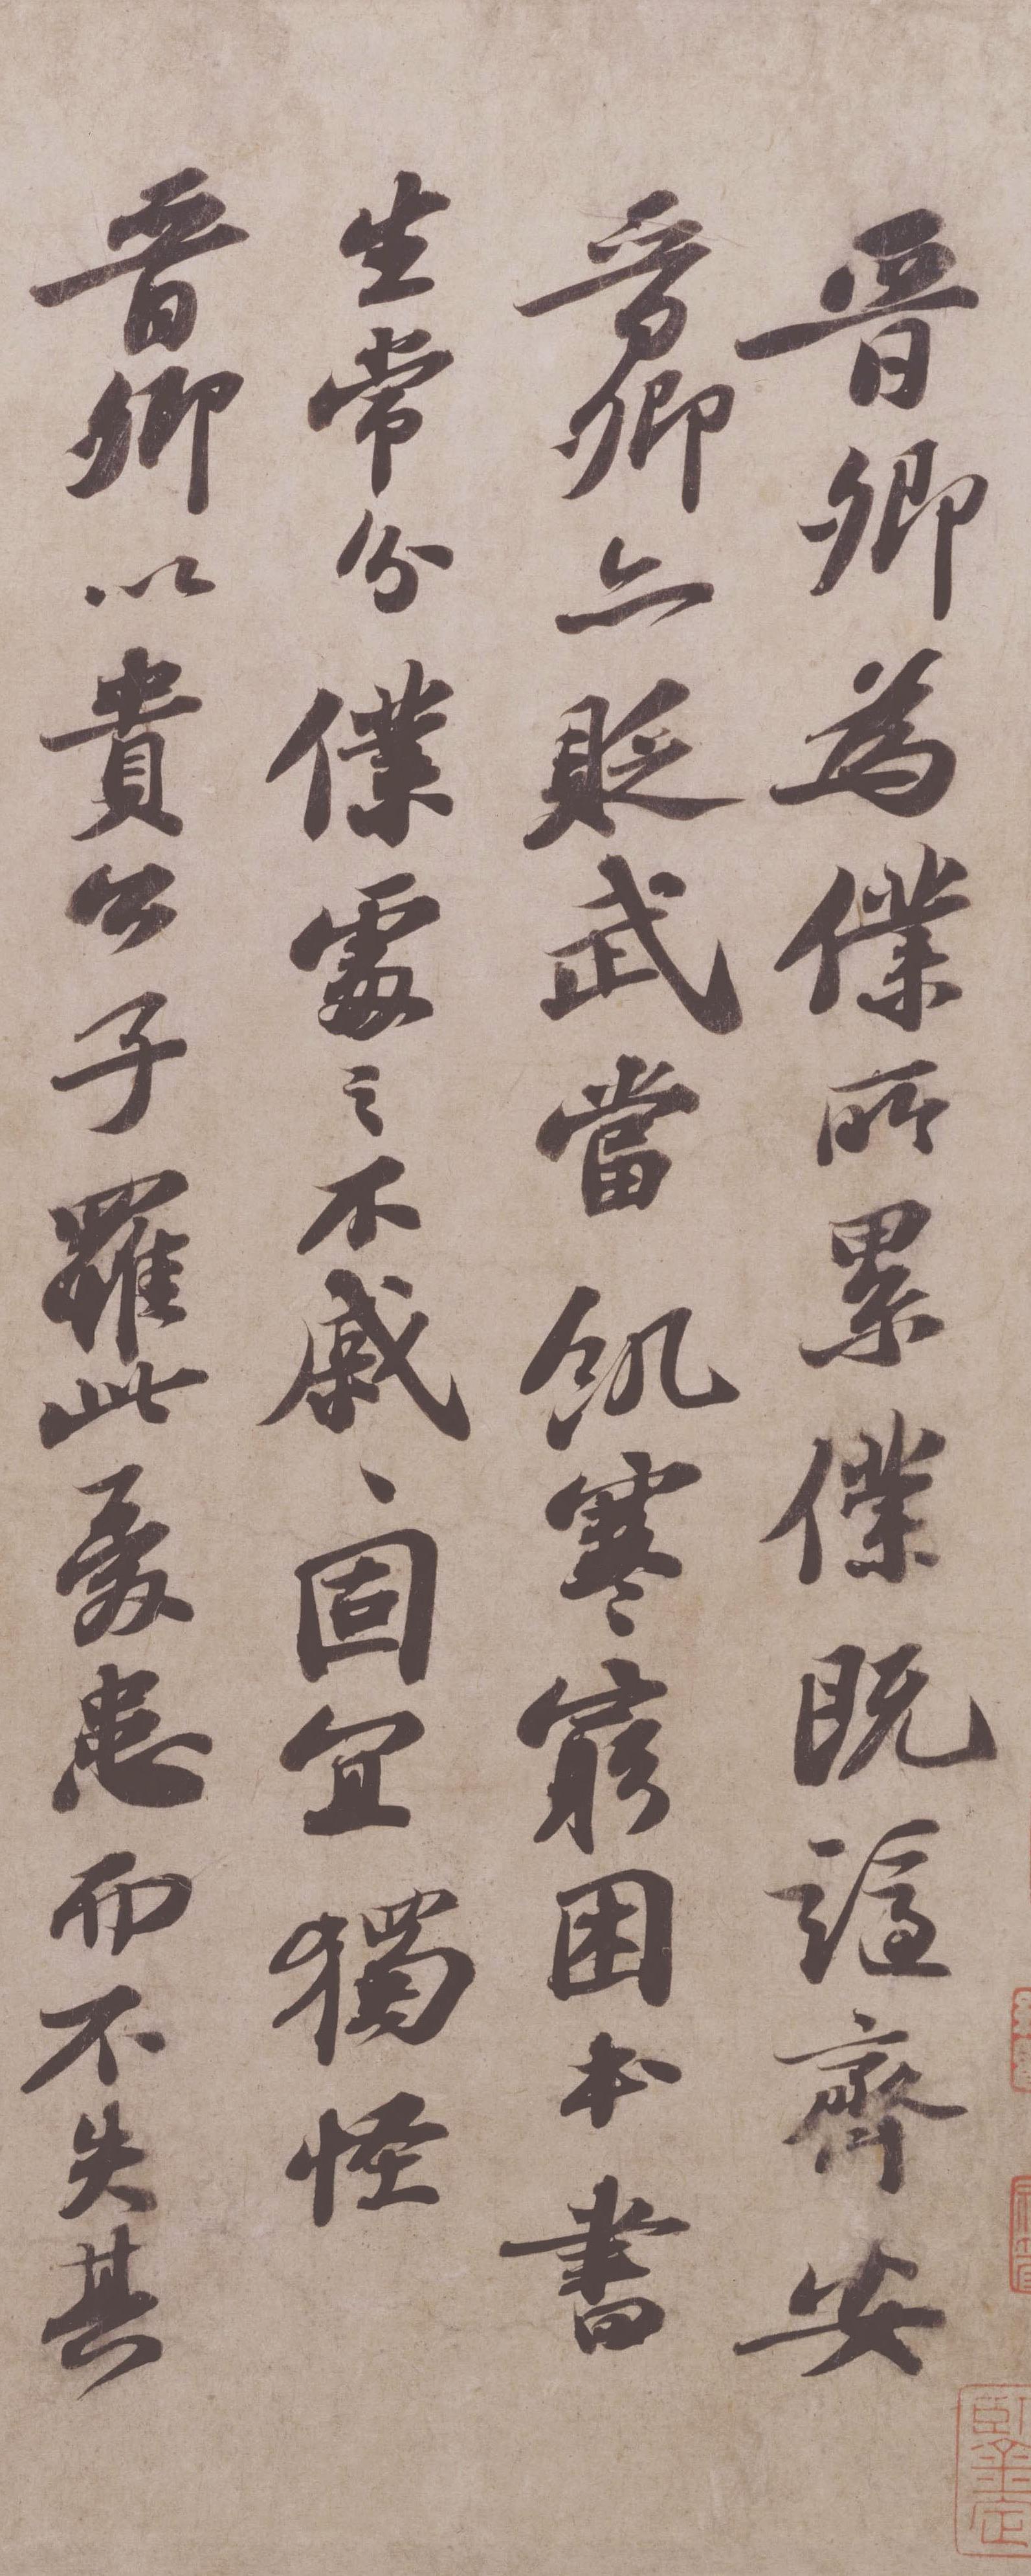 晉卿為僕所累僕既謫齊安
晉卿亦貶武當飢寒窮困本書
生常分僕處之不戚、固宜獨怪
晉卿以貴公子罹此憂患而不失其